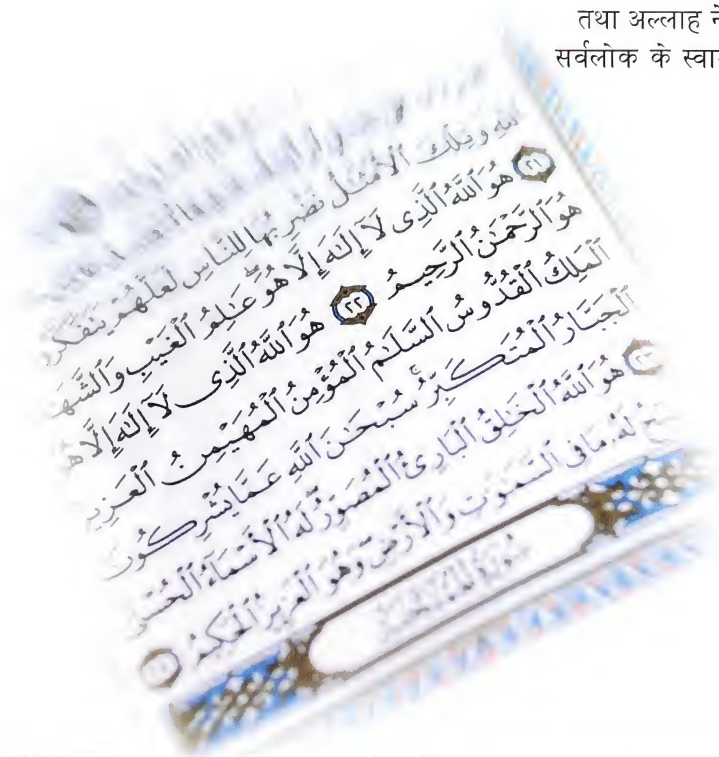 तथा अल्लाह ने
सर्वलोक के स्वा
للهِ وَتِلْكَ ٱلْأَمْثَٰلُ نَضْرِبُهَا لِلنَّاسِ لَعَلَّهُمْ يَتَفَكَّرُ
٢١ هُوَ ٱللَّهُ ٱلَّذِى لَآ إِلَٰهَ إِلَّا هُوَ ۖ عَٰلِمُ ٱلْغَيْبِ وَٱلشَّهَ
هُوَ ٱلرَّحْمَٰنُ ٱلرَّحِيمُ ٢٢ هُوَ ٱللَّهُ ٱلَّذِى لَآ إِلَٰهَ إِلَّا هُ
ٱلْمَلِكُ ٱلْقُدُّوسُ ٱلسَّلَٰمُ ٱلْمُؤْمِنُ ٱلْمُهَيْمِنُ ٱلْعَزِيزُ
ٱلْجَبَّارُ ٱلْمُتَكَبِّرُ ۚ سُبْحَٰنَ ٱللَّهِ عَمَّا يُشْرِكُونَ
٢٣ هُوَ ٱللَّهُ ٱلْخَٰلِقُ ٱلْبَارِئُ ٱلْمُصَوِّرُ ۖ لَهُ ٱلْأَسْمَآءُ ٱلْحُسْنَ
حُ لَهُۥ مَا فِى ٱلسَّمَٰوَٰتِ وَٱلْأَرْضِ ۖ وَهُوَ ٱلْعَزِيزُ ٱلْحَكِيمُ